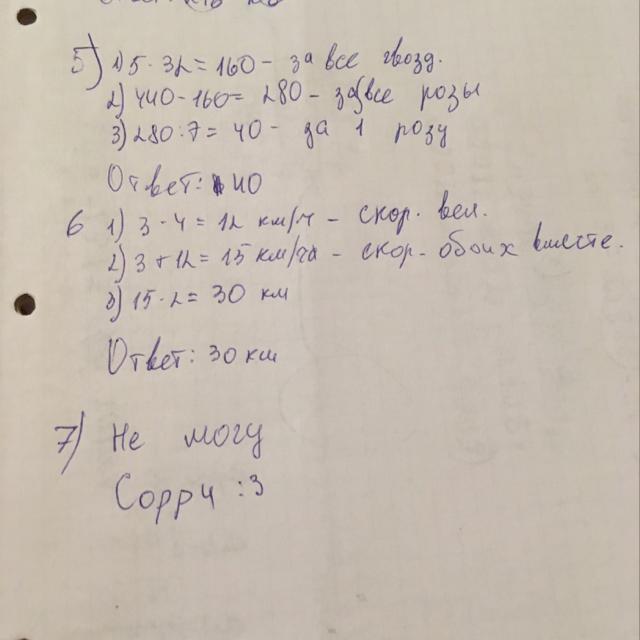 5) 1) 5 · 32 = 160 - за все гвозд.
2) 440 - 160 = 280 - за все розы
3) 280 : 7 = 40 - за 1 розу
Ответ: 40
6 1) 3 · 4 = 12 км/ч - скор. вел.
2) 3 + 12 = 15 км/ча - скор. обоих вместе.
3) 15 · 2 = 30 км
Ответ: 30 км
7) Не могу
Сорри :3